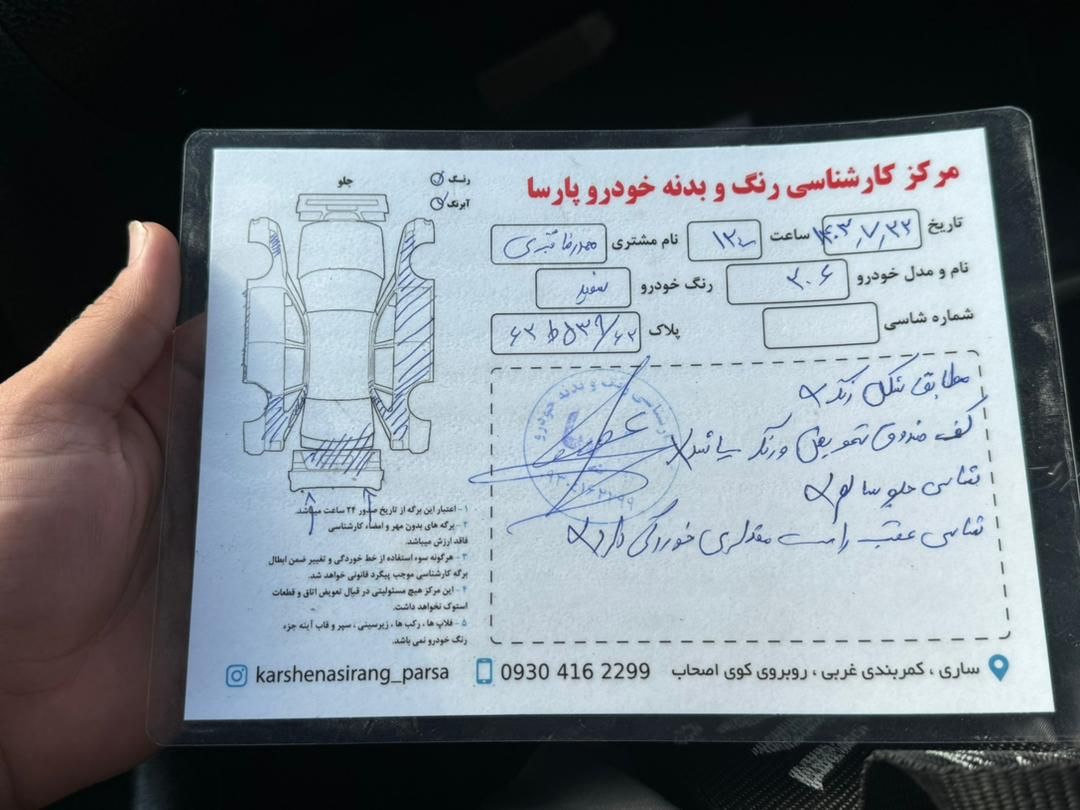 مرکز کارشناسی رنگ و بدنه خودرو پارسا
تاریخ ۱۴۰۳٫۷٫۲۲ ساعت ۱۲ نام مشتری محمدرضا
نام و مدل خودرو ۲۰۶ رنگ خودرو سفید
شماره شاسی پلاک
مطابق شکل رنگ
کف صندوق تعویض و رنگ میباشد
شاسی جلو سالم
شاسی عقب راست مقداری خوردگی دارد
رنگ
آبرنگ
جلو
۱- اعتبار این برگه از تاریخ صدور ۲۴ ساعت میباشد.
۲- برگه های بدون مهر و امضاء کارشناسی
فاقد ارزش میباشد.
۳- هرگونه سوء استفاده از خط خوردگی و تغییر ضمن ابطال
برگه کارشناسی موجب پیگرد قانونی خواهد شد.
۴- این مرکز هیچ مسئولیتی در قبال تعویض اتاق و قطعات
استوک نخواهد داشت.
۵- فلاپ ها ، رکب ها ، زیرسینی ، سپر و قاب آینه جزء
رنگ خودرو نمی باشد.
ساری ، کمربندی غربی ، روبروی کوی اصحاب
0930 416 2299
karshenasirang_parsa